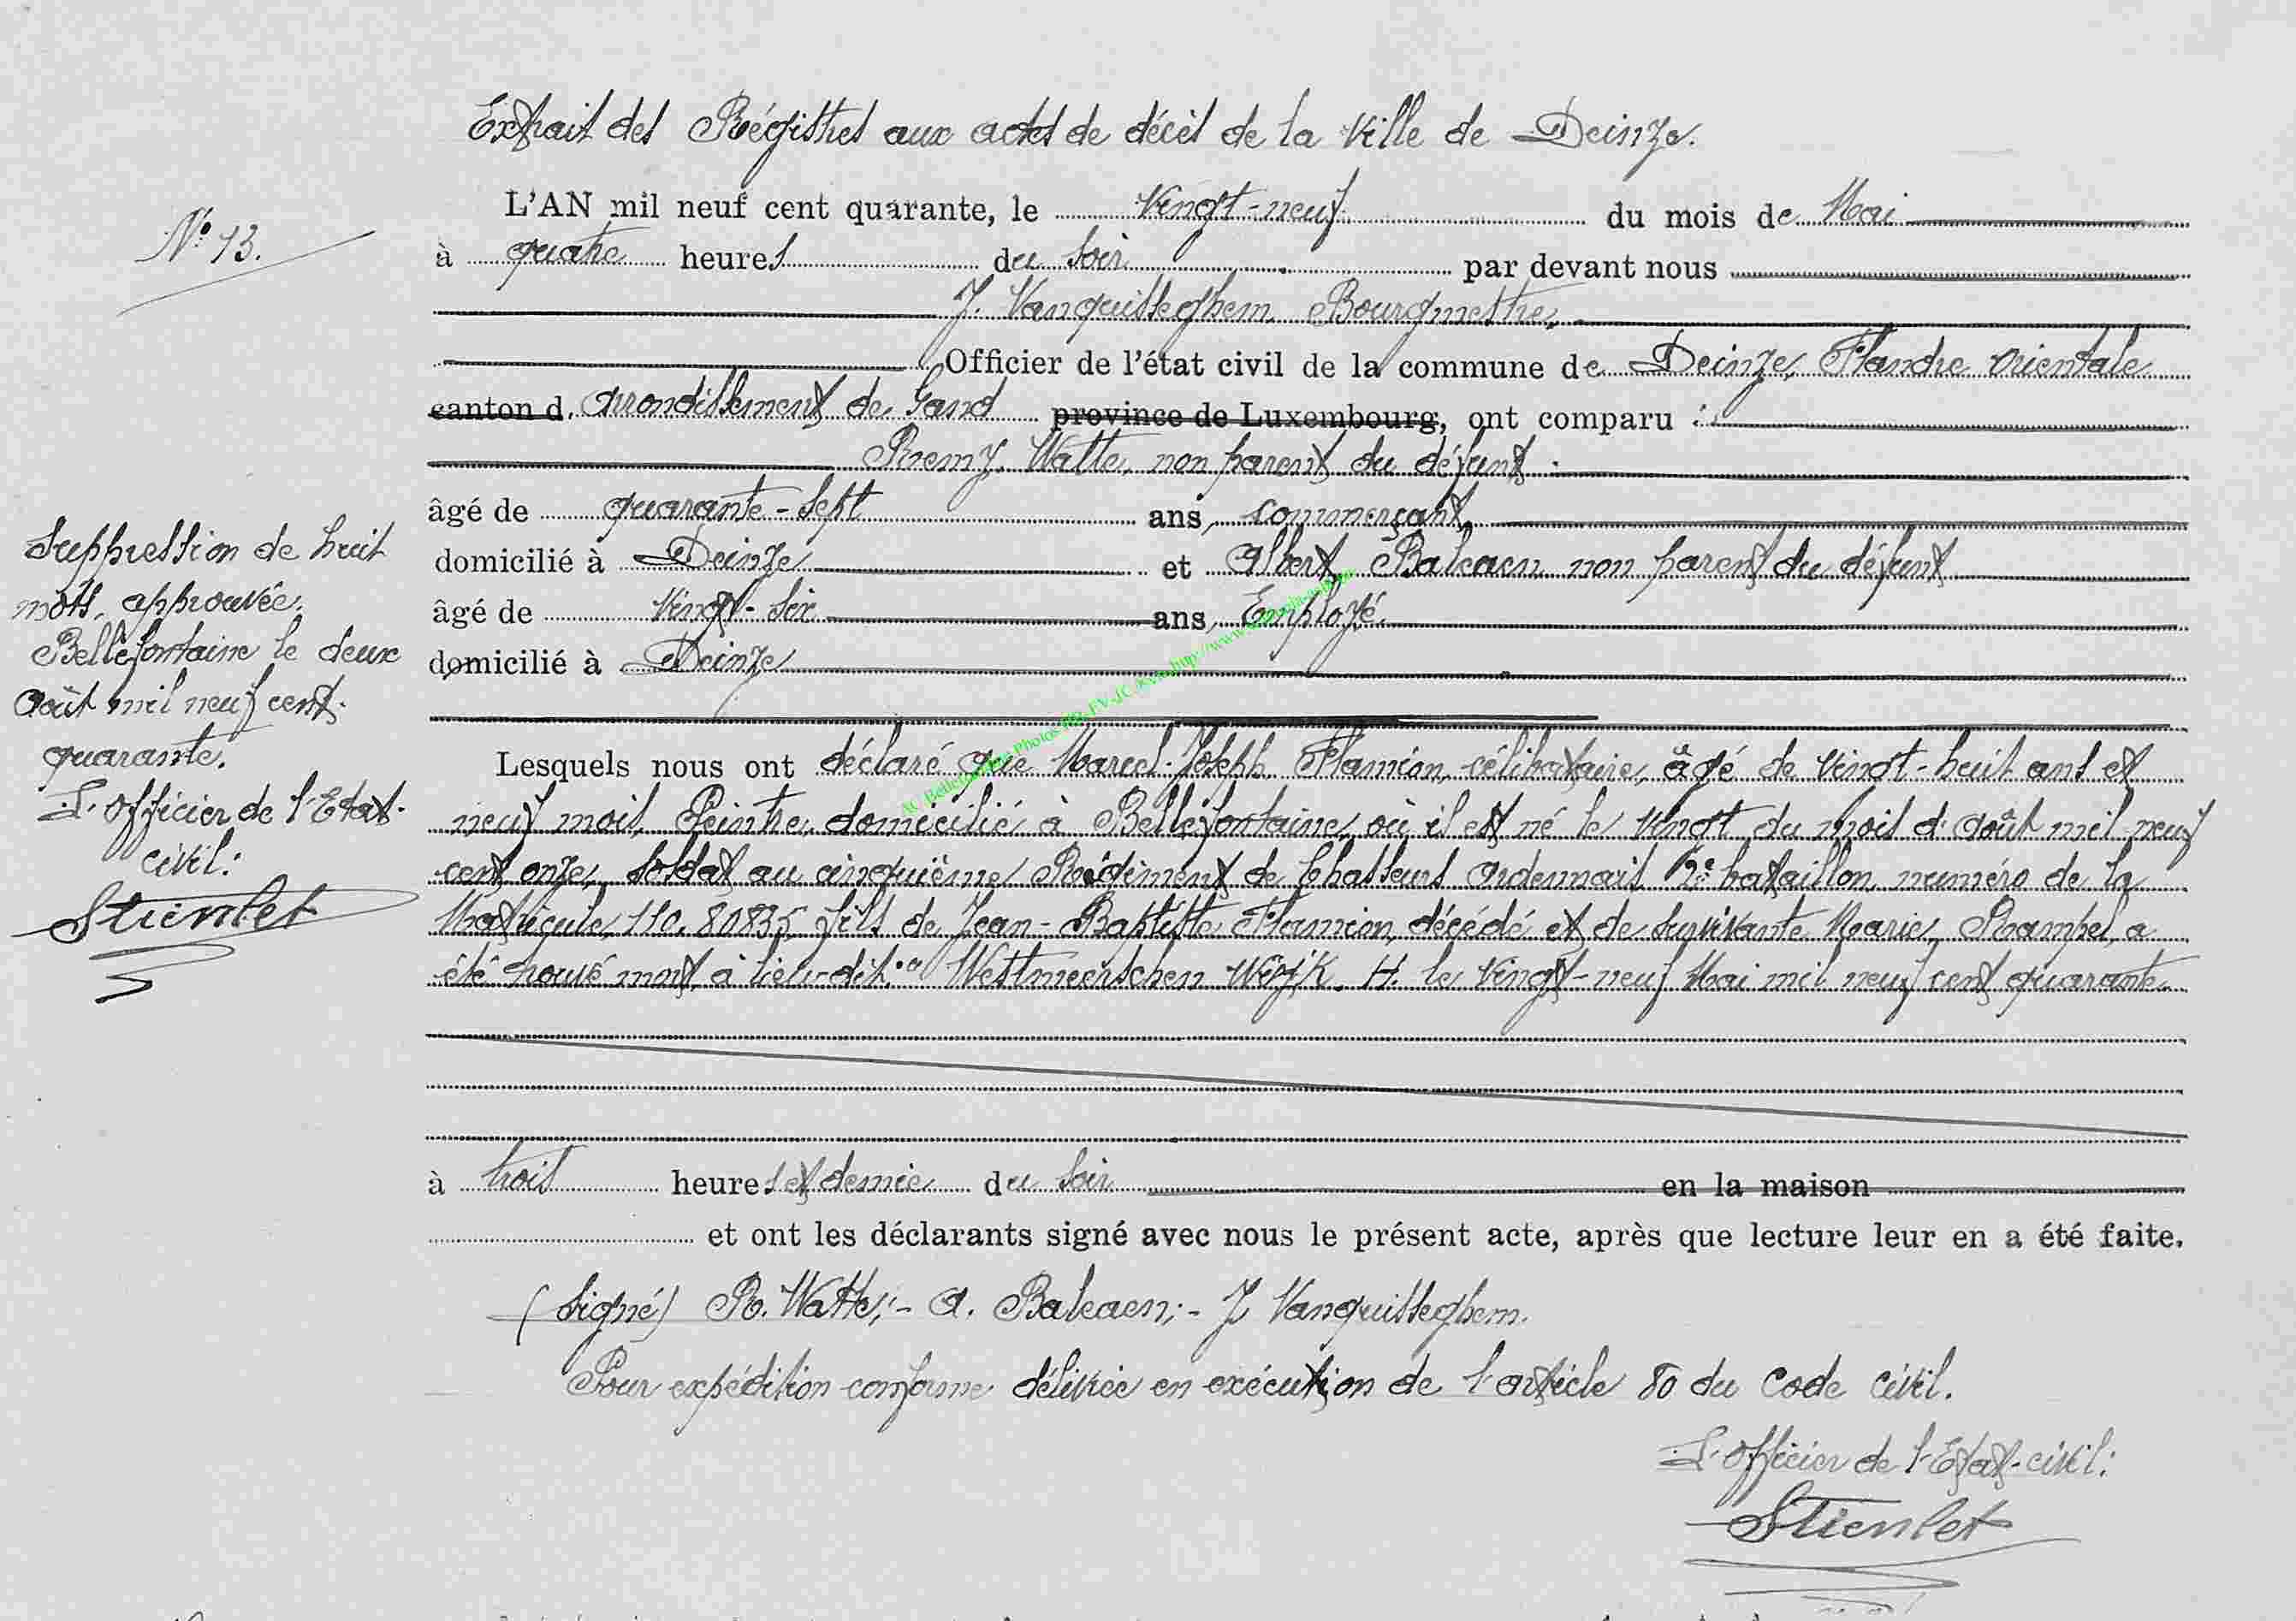 Extrait des Régistres aux actes de décès de la Ville de Deinze.
N° 13.
L'AN mil neuf cent quarante, le vingt-neuf du mois de Mai
à quatre heures du soir par devant nous
J. Vanquisseghem, Bourgmestre,
Officier de l'état civil de la commune de Deinze, Flandre Orientale
canton d. arrondissement de Gand province de Luxembourg, ont comparu :
Remy Watte, non parent du défunt
âgé de quarante-sept ans, commerçant,
domicilié à Deinze et Albert Balcaen non parent du défunt
âgé de vingt-six ans, Employé.
domicilié à Deinze
Suppression de huit
mots, approuvée.
Bellefontaine le deux
août mil neuf cent.
quarante.
L'Officier de l'Etat-
civil:
Stienlet
Lesquels nous ont déclaré que Marcel-Joseph Flamion, célibataire, âgé de vingt-huit ans et
neuf mois, Peintre, domicilié à Bellefontaine, où il est né le vingt du mois d'août mil neuf
cent onze, soldat au cinquième Régiment de Chasseurs Ardennais 2e bataillon, numéro de la
Matricule, 110.80835, fils de Jean-Baptiste Flamion, décédé et de survivante Marie, Rampel, a
été trouvé mort, à lieu-dit: Westmeerschen Wijk. H. le vingt-neuf Mai mil neuf cent quarante.
à trois heures et demie du soir en la maison
et ont les déclarants signé avec nous le présent acte, après que lecture leur en a été faite.
(Signé) R. Watte;- A. Balcaen;- J Vanquisseghem.
Pour expédition conforme délivrée en exécution de l'article 80 du Code civil.
L'Officier de l'Etat-civil:
Stienlet